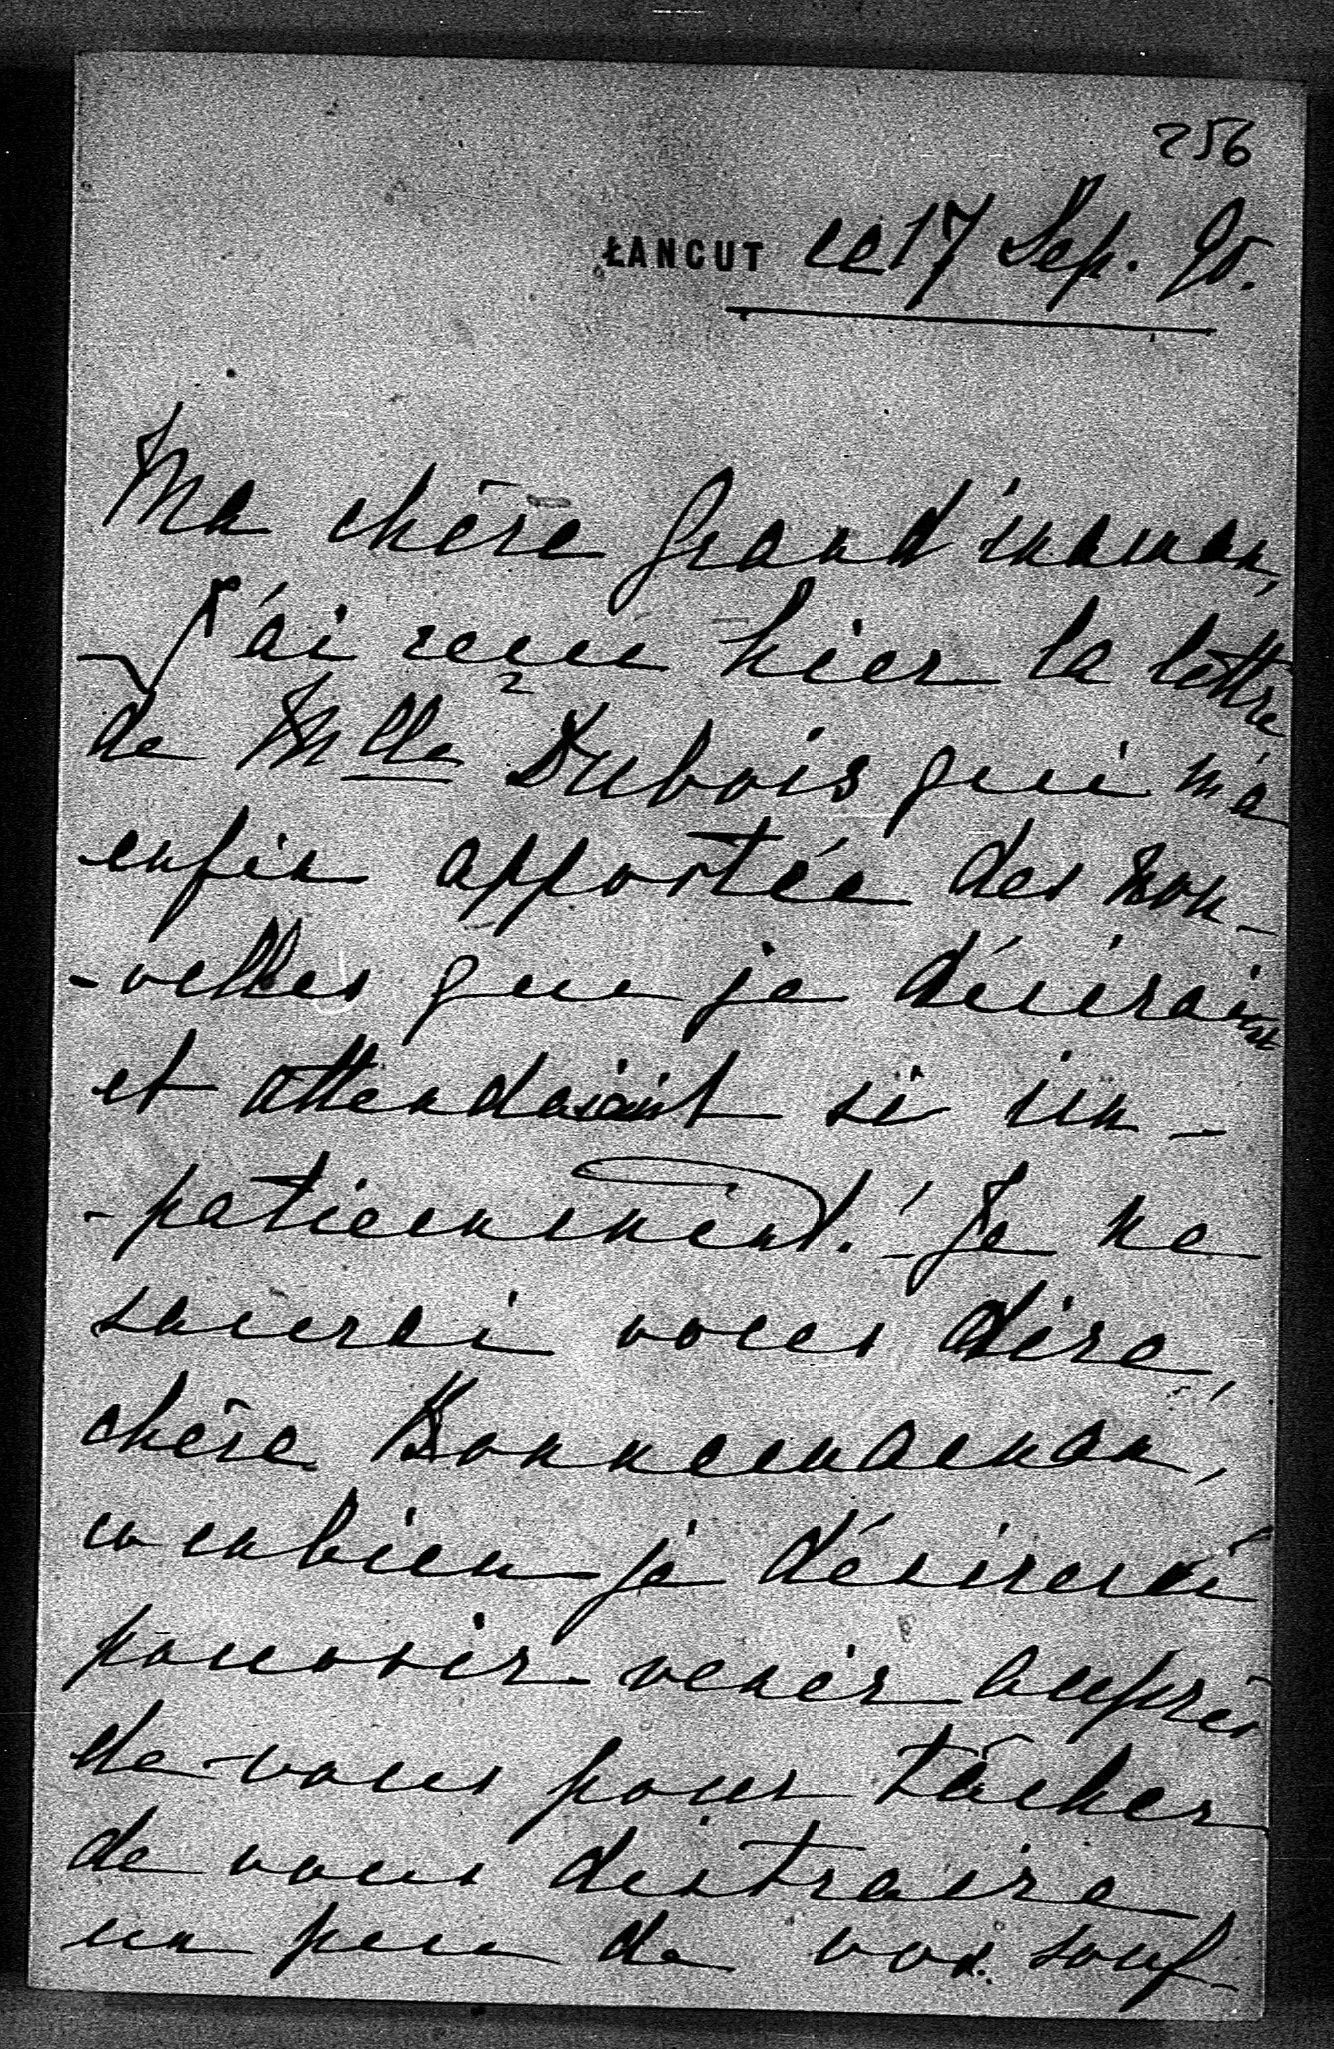 256
ŁANCUT le 17 Sep. 90.
Ma chère Grand'maman,
J'ai reçu hier la lettre
de Mlle Dubois qui m'a
enfin apportée des nou-
-velles que je désirais
et attendait si im-
-patiemment! Je ne
saurai vous dire,
chère Bonnemaman,
combien je désirerai
pouvoir venir auprès
de vous pour tâcher
de vous distraire
un peu de vos souf-